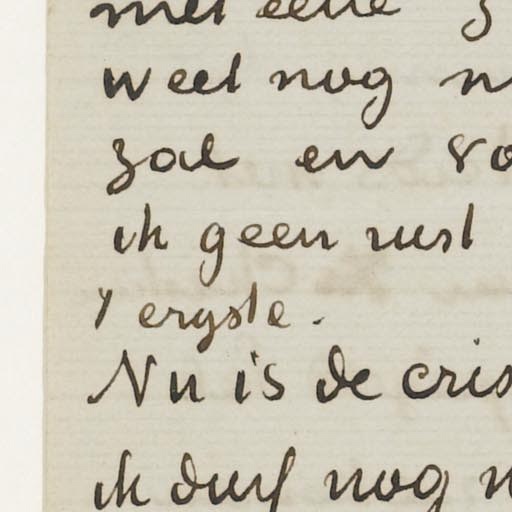 met eene
weet nog
zal en
ik geen rust
't ergste.
Nu is de cris
ik durf nog